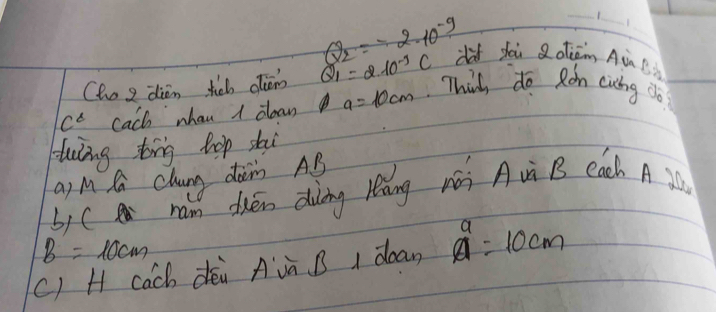 Q2 = - 2.10^-9
Cho 2 điện tích điểm Q1 = 2.10^-9 C đặt tại 2 điểm A và B
cách nhau 1 đoạn a = 10cm. Tính độ lớn cường độ
trường tổng hợp tại
a) M là trung điểm AB
b) C nằm trên đường thẳng nối A và B cách A 20cm
B = 10cm
c) H cách đều A và B 1 đoạn a = 10cm